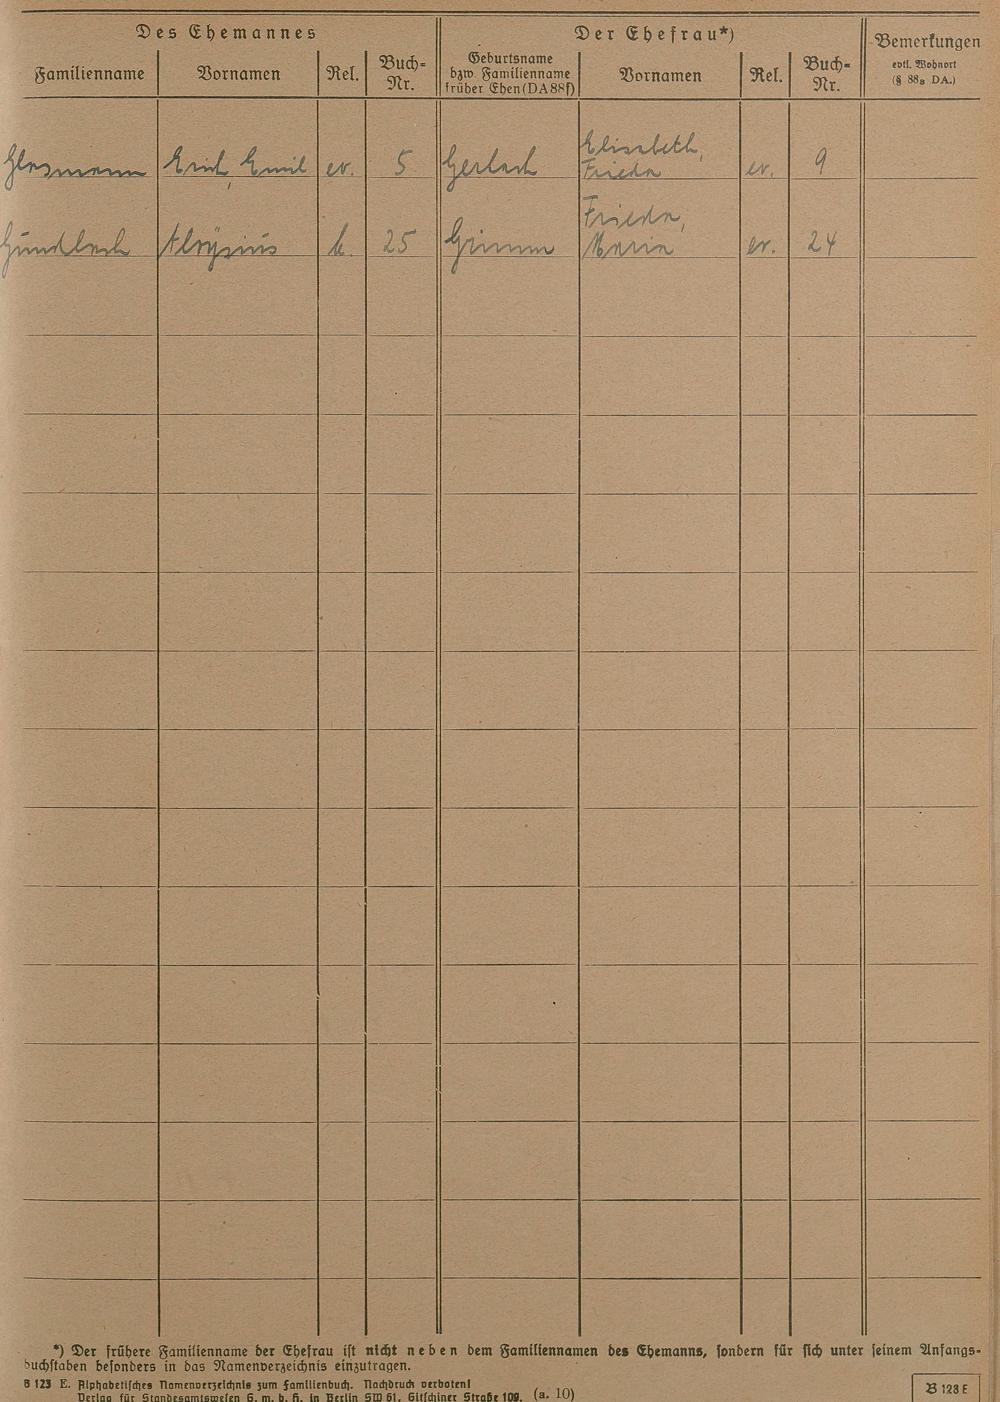 Des Ehemannes
Der Ehefrau*)
Bemerkungen
evtl. Wohnort
(§ 88a DA.)
Familienname
Vornamen
Rel.
Buch-
Nr.
Geburtsname
bzw. Familienname
früher Ehen (DA 88f)
Vornamen
Rel.
Buch-
Nr.
Elisabeth,
Glasmann Erich, Emil ev. 5 Gerlach Frieda ev. 9
Frieda,
Gundlach Aloysius k. 25 Grimm Maria ev. 24
*) Der frühere Familienname der Ehefrau ist nicht neben dem Familiennamen des Ehemanns, sondern für sich unter seinem Anfangs-
buchstaben besonders in das Namenverzeichnis einzutragen.
B 123 E. Alphabetisches Namenverzeichnis zum Familienbuch. Nachdruck verboten!
Verlag für Standesamtswesen G. m. b. H. in Berlin SW 61, Gitschiner Straße 109. (a. 10)
B 123 E